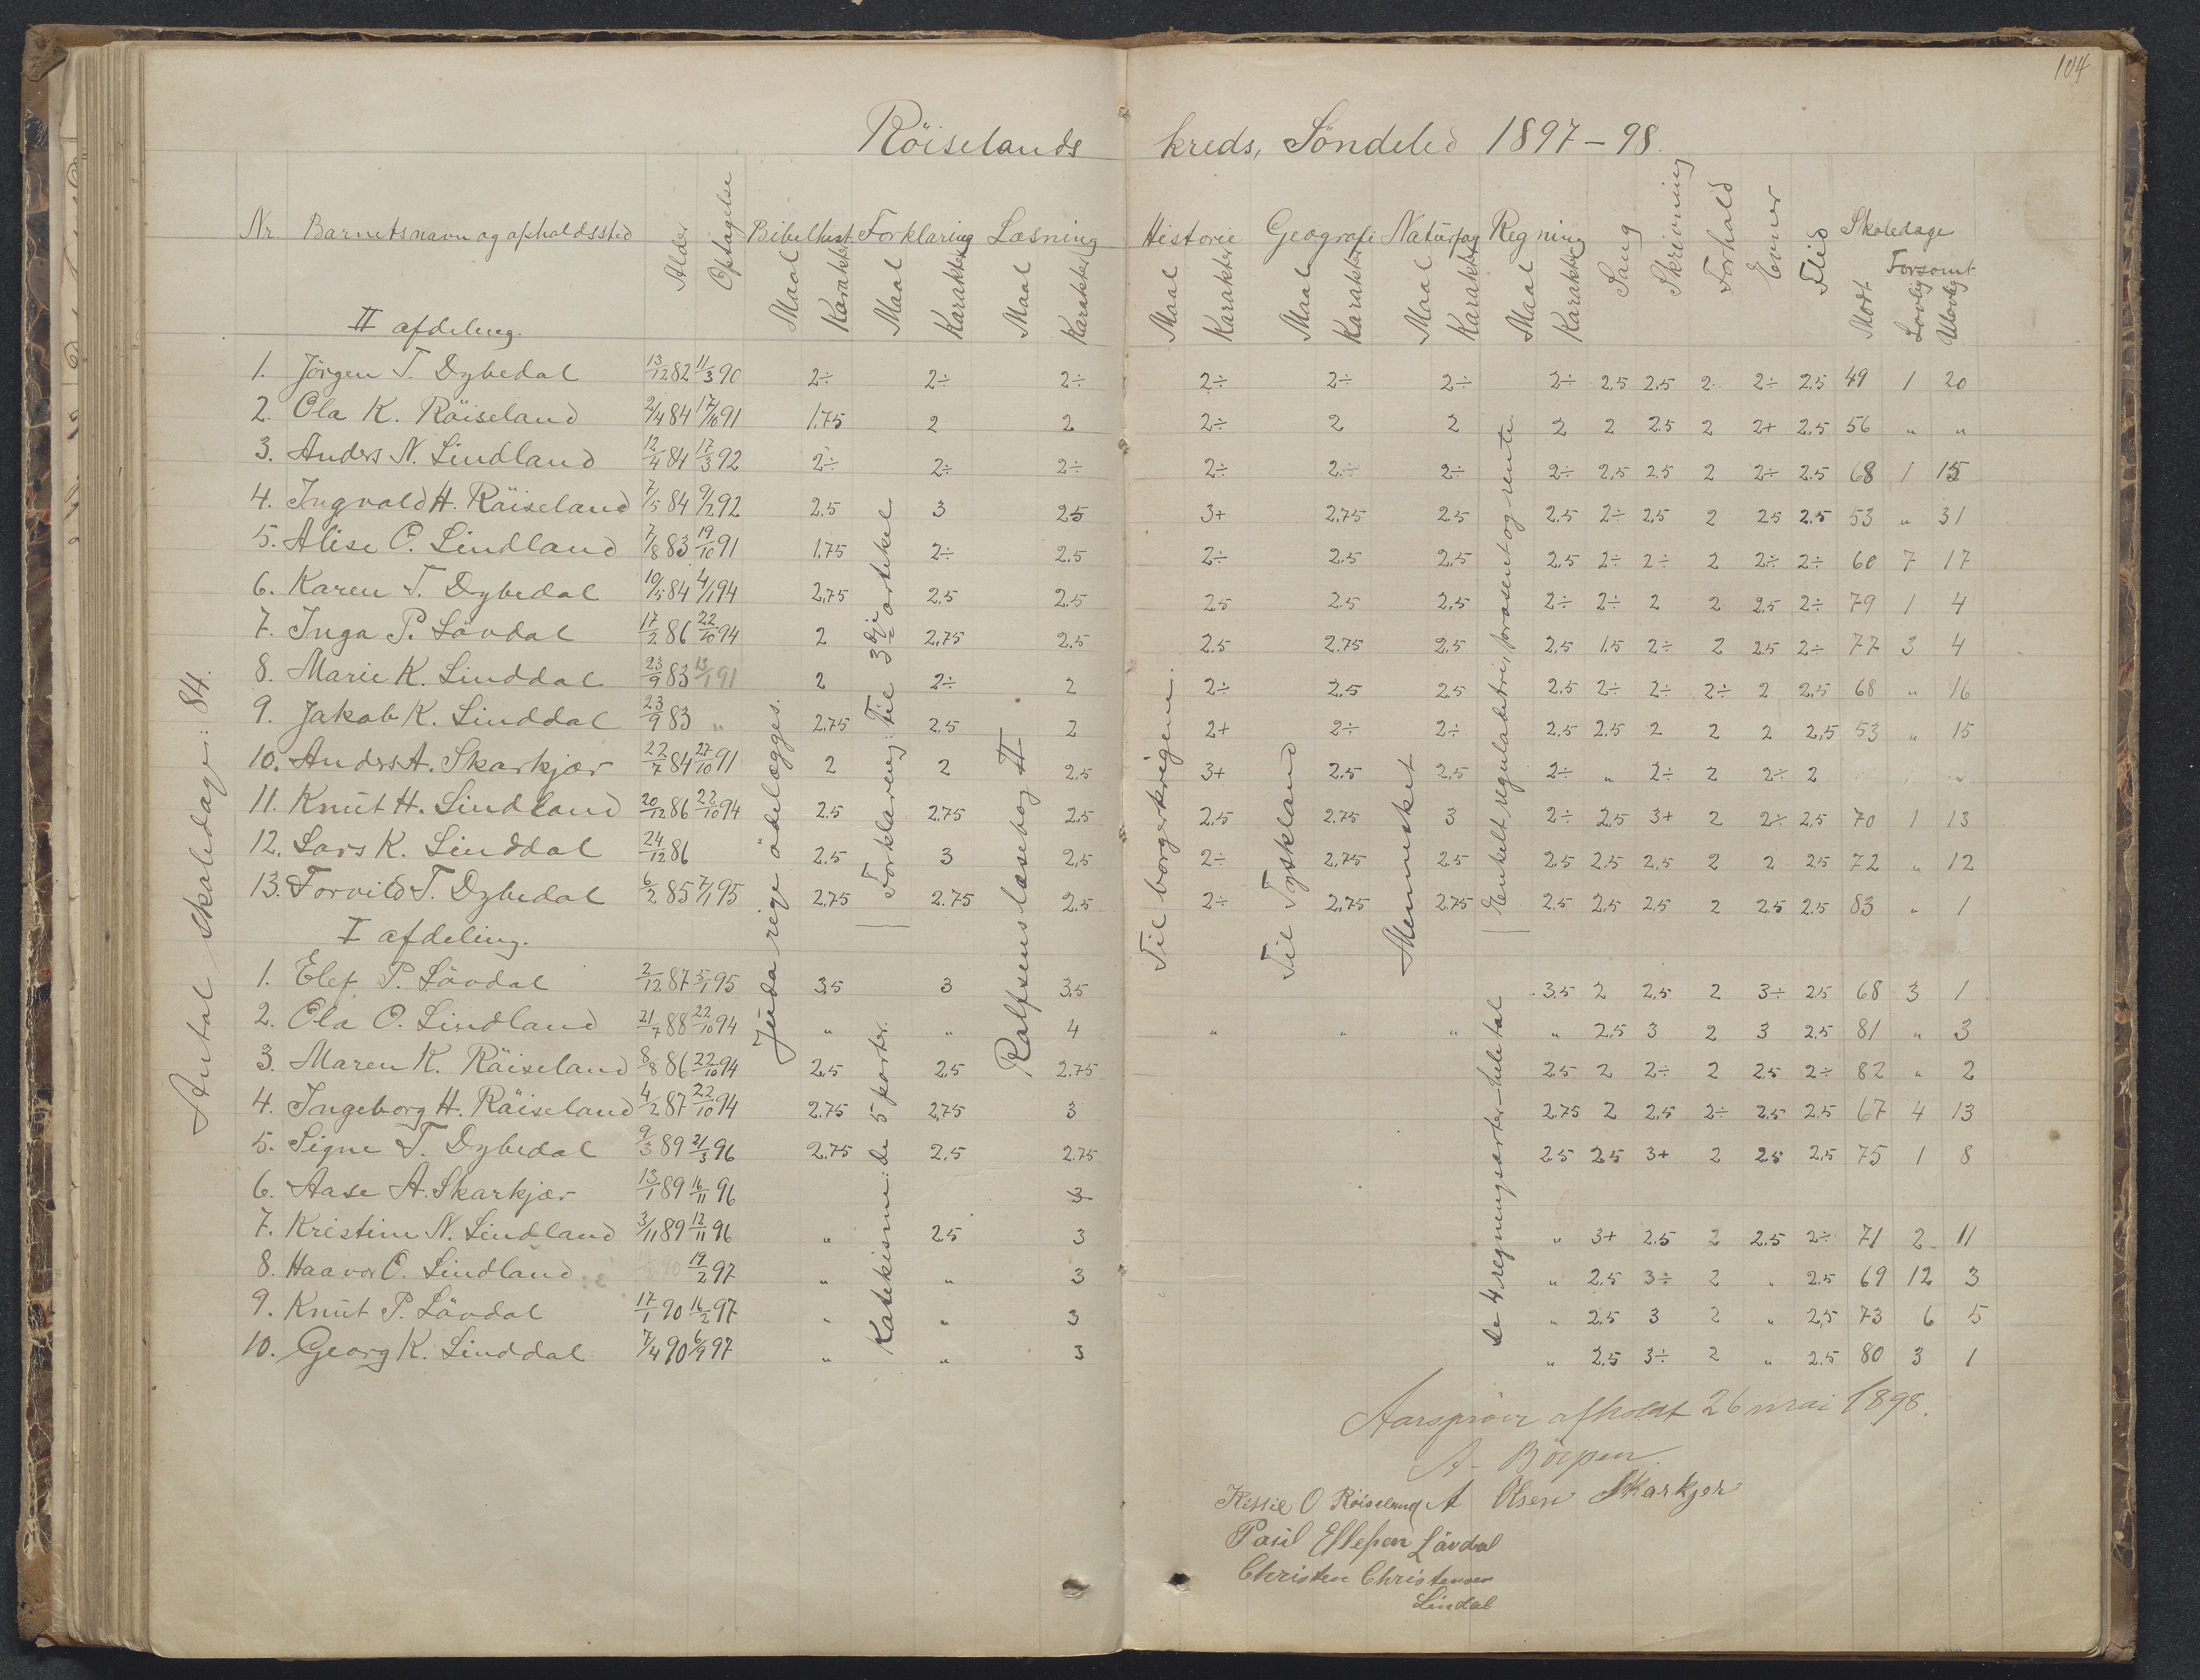 104
Röiselands kreds, Söndeled 1897-98.
Nr. Barnets navn og opholdssted Alder Optagelse Bibelhist. Forklaring Læsning Historie Geografi Naturfag Regning Sang Skrivning Forhold Evner Flid Skoledage
Forsömt
Maal Karakter Maal Karakter Maal Karakter Maal Karakter Maal Karakter Maal Karakter Maal Karakter Mödt Lovlig Ulovlig
II afdeling.
1. Jörgen T. Dybedal 13/12 82 11/3 90 2÷ 2÷ 2÷ 2÷ 2÷ 2÷ 2÷ 2,5 2,5 2 2÷ 2.5 49 1 20
2. Ola K. Röiseland 2/4 84 17/10 91 1.75 2 2 2÷ 2 2 2 2 2.5 2 2+ 2,5 56 " "
3. Anders N. Lindland 12/4 84 17/3 92 2÷ 2÷ 2÷ 2÷ 2÷ 2÷ 2÷ 2,5 2.5 2 2÷ 2.5 68 1 15
4. Ingvald H. Röiseland 7/5 84 9/2 92 2.5 3 2.5 3+ 2,75 2.5 2,5 2÷ 2,5 2 2.5 2.5 53 " 31
5. Alise O. Lindland 7/8 83 19/10 91 1.75 2÷ 2.5 2÷ 2.5 2,5 2,5 2÷ 2÷ 2 2÷ 2÷ 60 7 17
6. Karen T. Dybedal 10/5 84 4/1 94 2,75 2,5 2.5 2.5 2.5 2,5 2÷ 2÷ 2 2 2.5 2÷ 79 1 4
7. Inga P. Lövdal 17/2 86 22/10 94 2 2,75 2,5 2.5 2.75 2.5 2,5 1.5 2÷ 2 2.5 2÷ 77 3 4
8. Marie K. Linddal 23/9 83 13/1 91 2 2÷ 2 2÷ 2.5 2.5 2.5 2÷ 2÷ 2÷ 2 2,5 68 " 16
9. Jakob K. Linddal 23/9 83 " 2.75 2.5 2 2+ 2÷ 2÷ 2.5 2.5 2 2 2 2,5 53 " 15
10. Anders A. Skarkjær 22/7 84 27/10 91 2 2 2.5 3+ 2.5 2,5 2÷ " 2÷ 2 2÷ 2
11. Knut H. Lindland 20/12 86 22/10 94 2.5 2.75 2,5 2,5 2.75 3 2÷ 2,5 3+ 2 2÷ 2,5 70 1 13
12. Lars K. Linddal 24/12 86 2.5 3 2,5 2÷ 2,75 2.5 2,5 2.5 2,5 2 2 2.5 72 " 12
13. Torvild T. Dybedal 6/2 85 7/1 95 2,75 2.75 2.5 2÷ 2,75 2.75 2.5 2.5 2,5 2 2.5 2.5 83 " 1
I afdeling.
1. Elef P. Lövdal 2/12 87 5/1 95 3,5 3 3,5 3.5 2 2,5 2 3÷ 2.5 68 3 1
2. Ola O. Lindland 21/7 88 22/10 94 " " 4 " " " " 2,5 3 2 3 2.5 81 " 3
3. Maren K. Röiseland 8/8 86 22/10 94 2,5 2,5 2.75 2.5 2 2÷ 2 2.5 2÷ 82 " 2
4. Ingeborg H. Röiseland 4/2 87 22/10 94 2.75 2,75 3 2.75 2 2,5 2÷ 2,5 2.5 67 4 13
5. Signe T. Dybedal 9/3 89 21/3 96 2,75 2,5 2.75 2.5 2.5 3+ 2 2.5 2,5 75 1 8
6. Aase A. Skarkjær 13/1 89 16/11 96 3
7. Kristine N. Lindland 3/11 89 12/11 96 " 2.5 3 " 3+ 2.5 2 2.5 2÷ 71 2 11
8. Haavor O. Lindland 90 19/2 97 " " 3 " 2.5 3÷ 2 " 2.5 69 12 3
9. Knut P. Lövdal 17/1 90 16/2 97 " " 3 " 2.5 3 2 " 2,5 73 6 5
10. Georg K. Linddal 7/4 90 6/9 97 " " 3 " 2.5 3÷ 2 " 2.5 80 3 1
Antal skoledage: 84.
Juda rige ödelægges.
Forklaring: Til 3dje artikel
Katekisme: de 5 parter.
Rolfsens læsebog II
Til borgerkrigene.
Til Tyskland
Mennesket
Enkelt reguladetri, prosent og rente
De 4 regningsarter hele tal
Aarspröve afholdt 26 mai 1898.
Kittil O Röiseland A Olsen Skarkjær
Paul Ellefsen Lövdal
Christen Christensen
Lindal